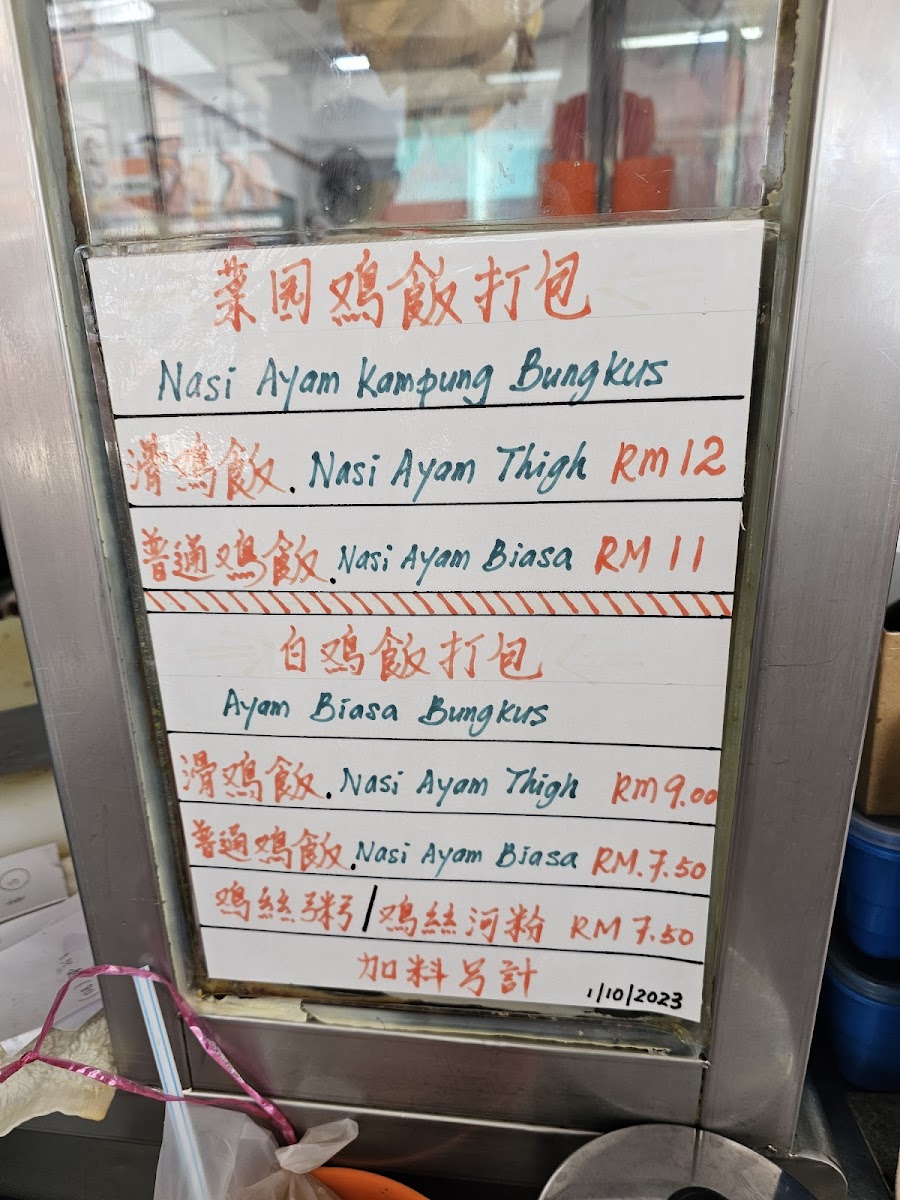 菜园鸡飯打包
Nasi Ayam Kampung Bungkus
滑鸡飯. Nasi Ayam Thigh RM 12
普通鸡飯. Nasi Ayam Biasa RM 11
白鸡飯打包
Ayam Biasa Bungkus
滑鸡飯. Nasi Ayam Thigh RM 9.00
普通鸡飯. Nasi Ayam Biasa RM.7.50
鸡絲粥/鸡絲河粉 RM 7.50
加料另計
1/10/2023